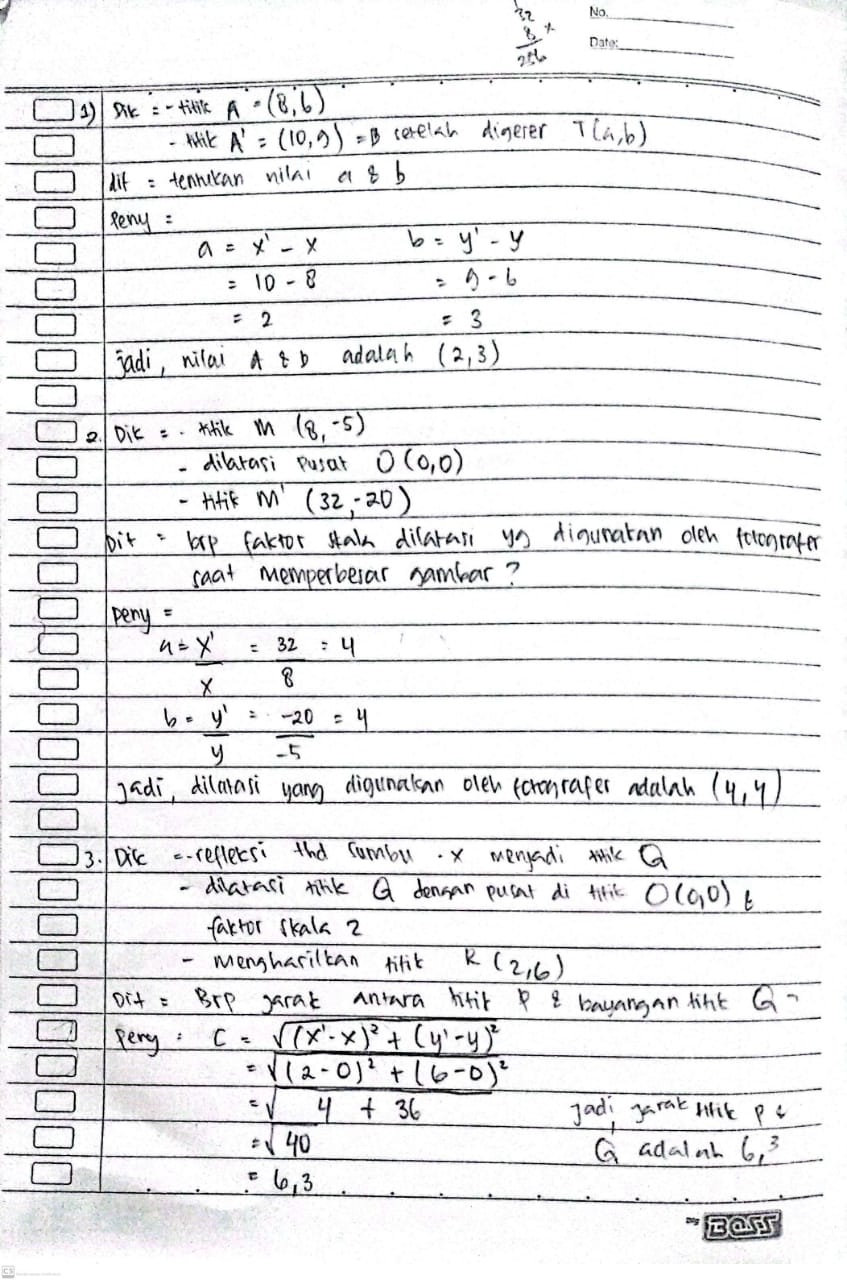 32
8 x
256
No.
Date:
1) Dik = - titik A = (8,6)
- titik A' = (10,9) => setelah digeser T(a,b)
dit = tentukan nilai a & b
Peny =
a = x' - x b = y' - y
= 10 - 8 = 9 - 6
= 2 = 3
jadi, nilai A & b adalah (2,3)
2. Dik = - titik M (8,-5)
- dilatasi pusat O (0,0)
- titik M' (32,-20)
Dit = brp faktor skala dilatasi yg digunakan oleh fotografer
saat memperbesar gambar?
Peny =
a = x' = 32 = 4
x 8
b = y' = -20 = 4
y -5
Jadi, dilatasi yang digunakan oleh fotografer adalah (4,4)
3. Dik = - refleksi thd sumbu -x menjadi titik Q
- dilatasi titik Q dengan pusat di titik O(0,0) &
faktor skala 2
- menghasilkan titik R (2,6)
Dit = Brp jarak antara titik P & bayangan titik Q
Peny = C = √(x'-x)² + (y'-y)²
= √(2-0)² + (6-0)²
= √ 4 + 36
Jadi, jarak titik P &
= √40
Q adalah 6,3
= 6,3
BOSS
CS